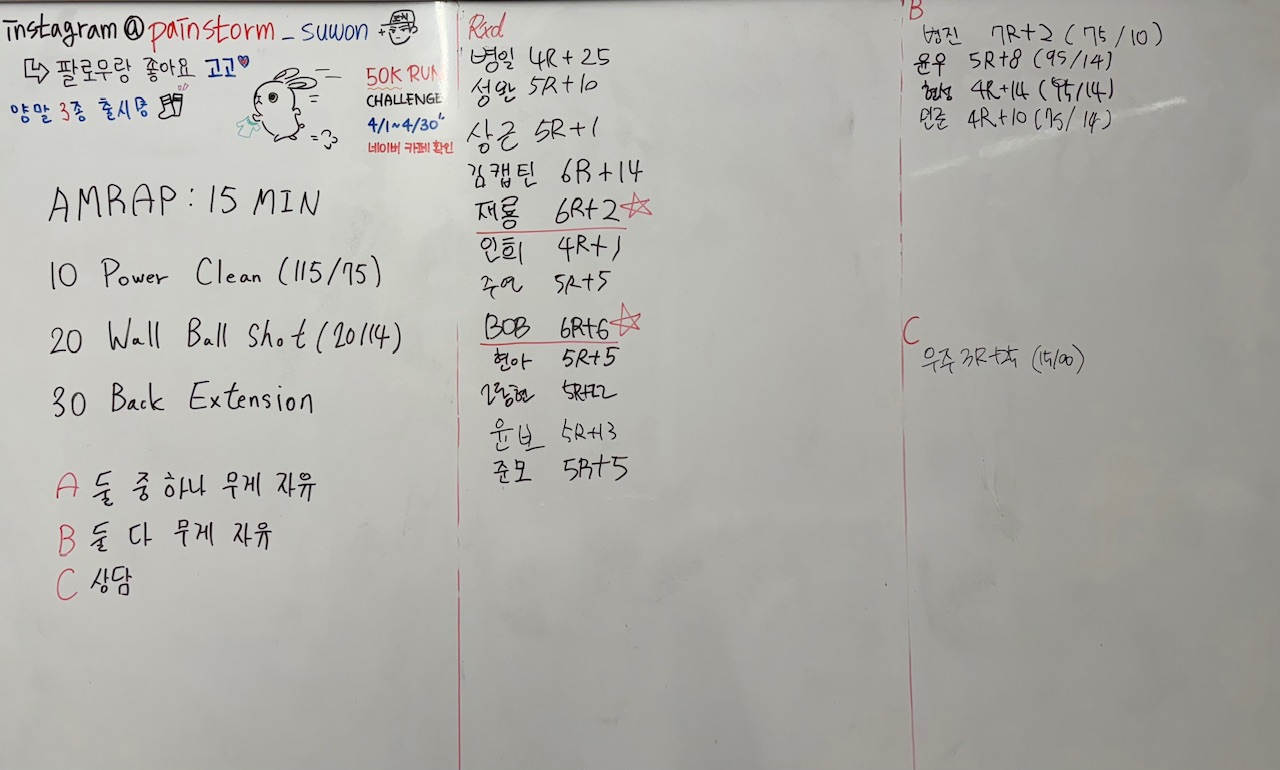 instagram@painstorm_suwon
↳ 팔로우랑 좋아요 고고♥
양말 3종 출시중
50K RUN
CHALLENGE
4/1~4/30
네이버 카페 확인
AMRAP : 15 MIN
10 Power Clean (115/75)
20 Wall Ball Shot (20/14)
30 Back Extension
A 둘 중 하나 무게 자유
B 둘 다 무게 자유
C 상담
Rxd
병일 4R+25
성완 5R+10
상근 5R+1
김캡틴 6R+14
재룡 6R+2☆
인희 4R+1
주연 5R+5
BOB 6R+6☆
현아 5R+5
5R+22
5R+13
준모 5R+5
B
병진 7R+2 (75/10)
윤우 5R+8 (95/14)
현성 4R+14 (95/14)
민준 4R+10 (75/14)
C
우주 3R+